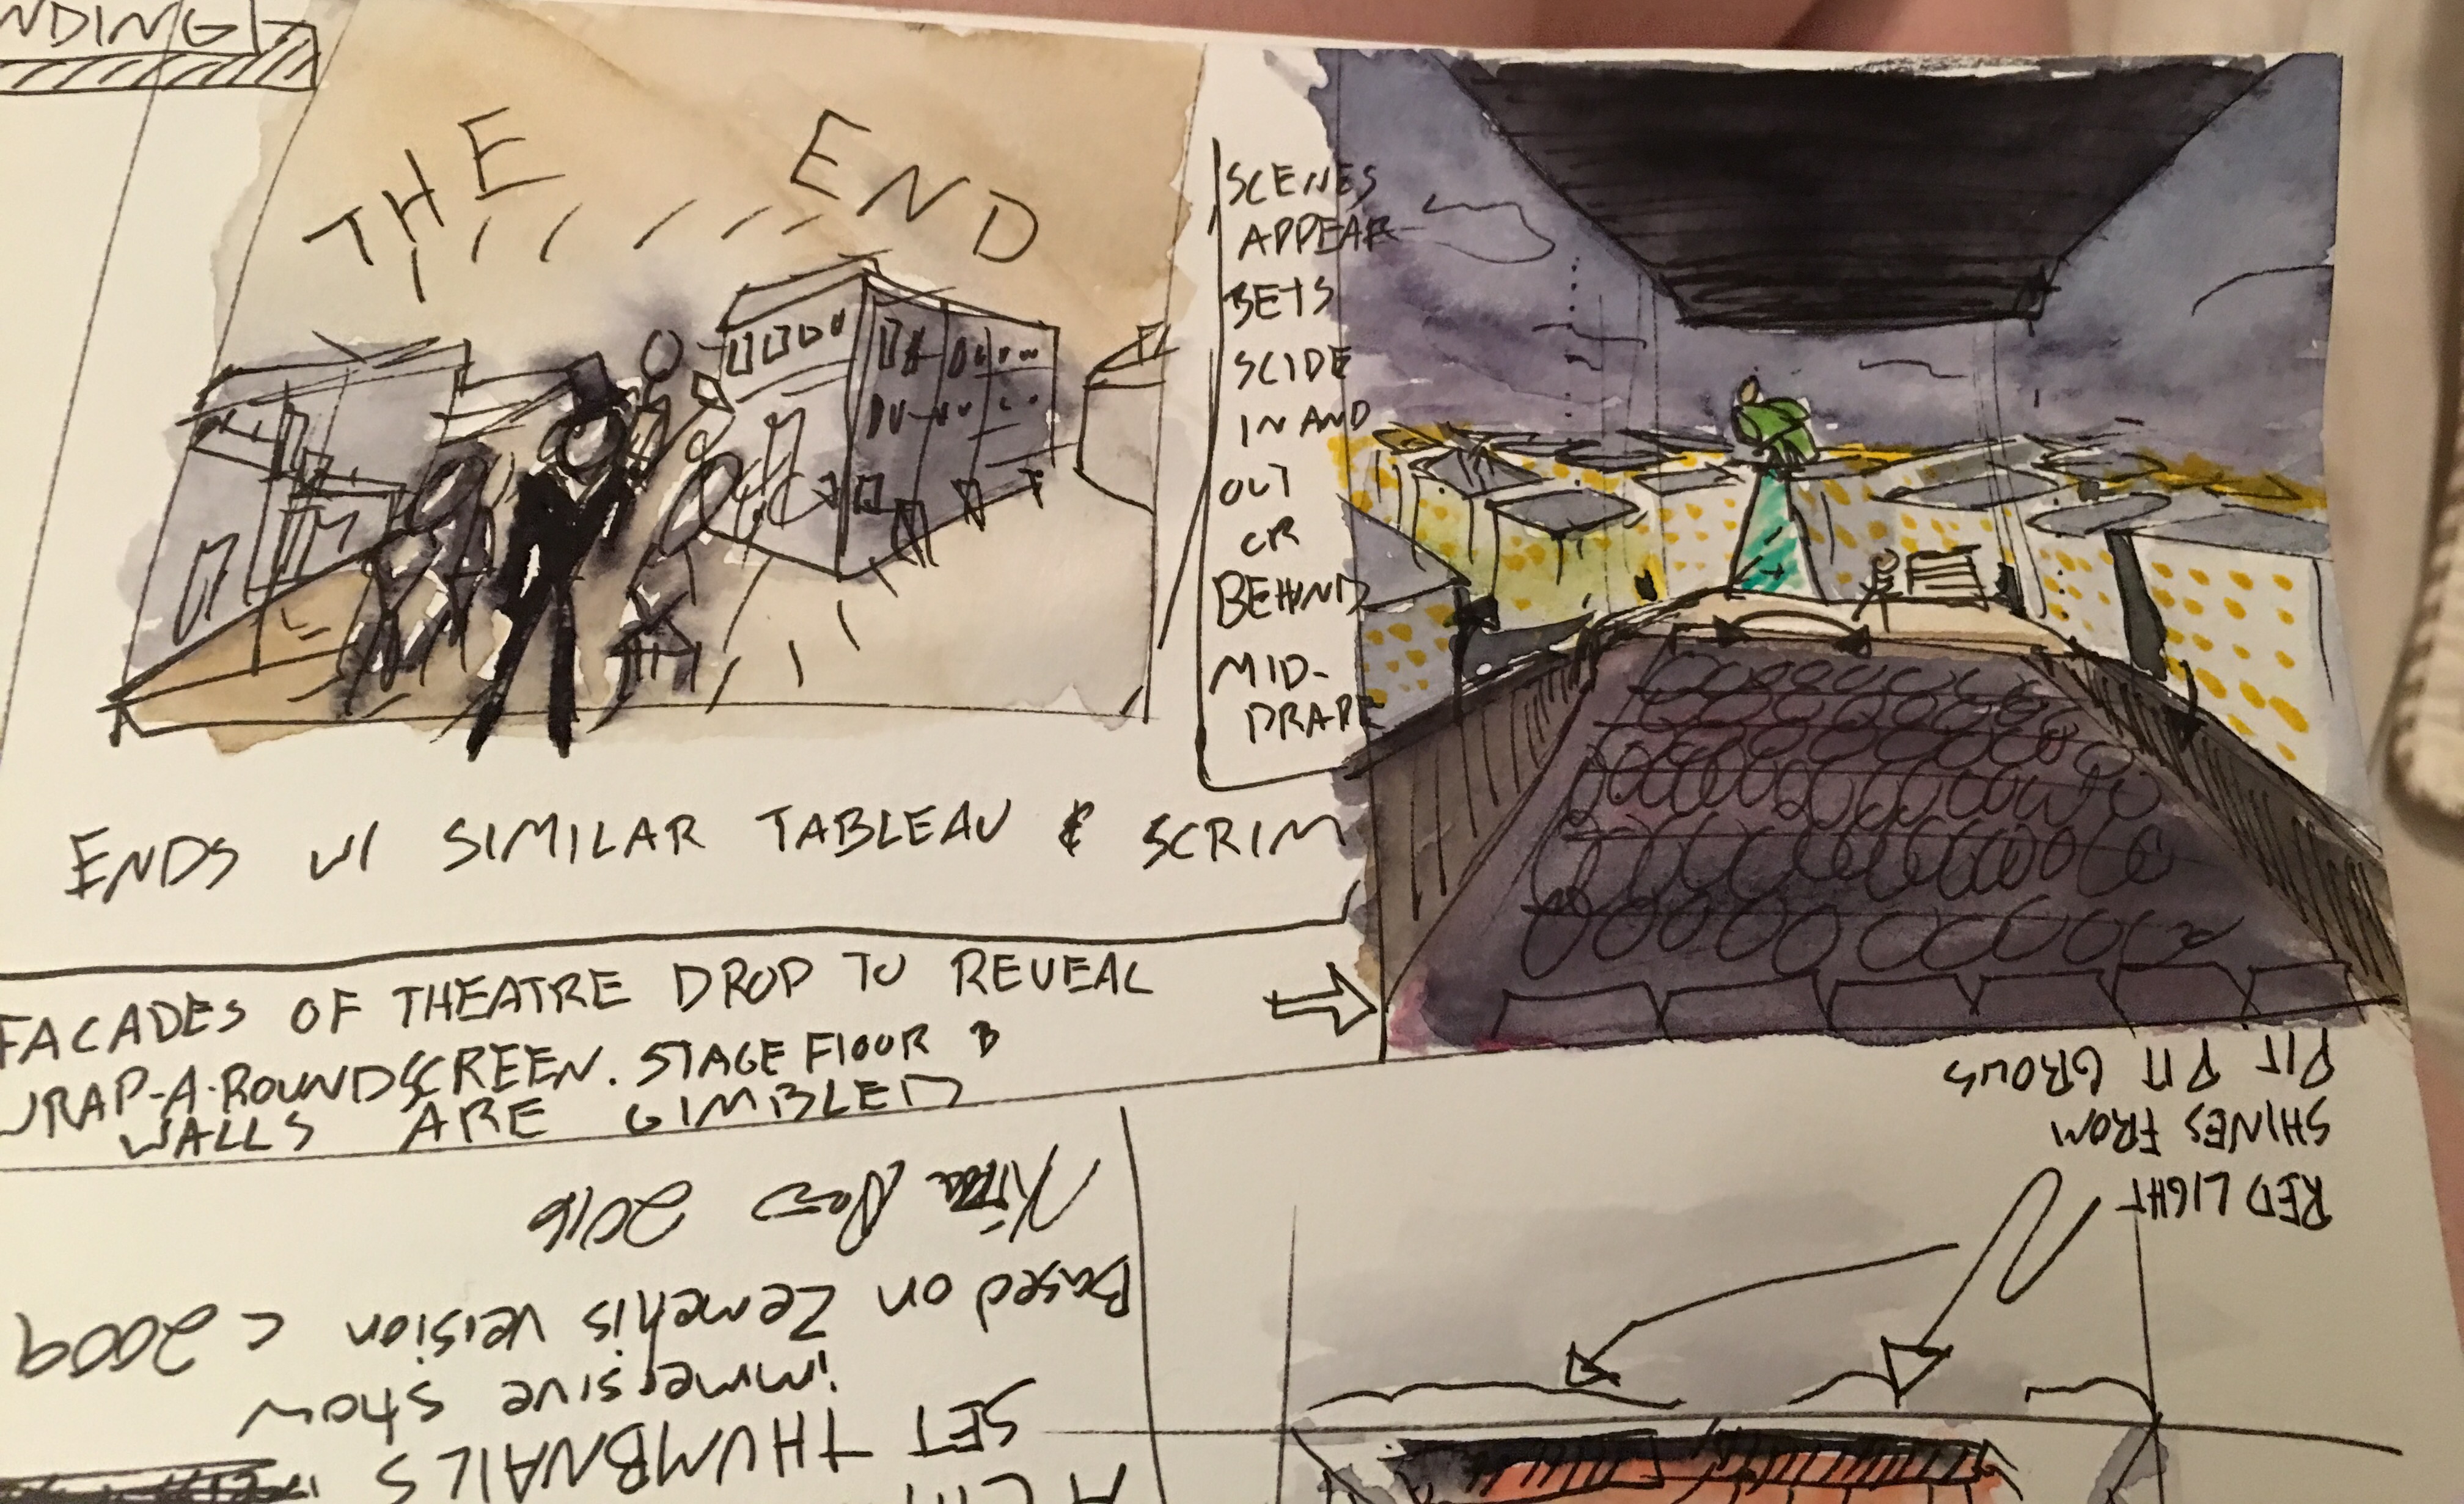 NDING
THE END
ENDS W/ SIMILAR TABLEAU & SCRIM
SCENES
APPEAR
BETS
SCIDE
IN AND
OUT
OR
BEHIND
MID-
DRAPE
FACADES OF THEATRE DROP TO REVEAL
WRAP-A-ROUNDSCREEN. STAGE FLOOR &
WALLS ARE GIMBLED
RED LIGHT
SHINES FROM
PIT PIT GROWS
SET THUMBNAILS
immersive show
Based on Zemekis version c 2009
2016